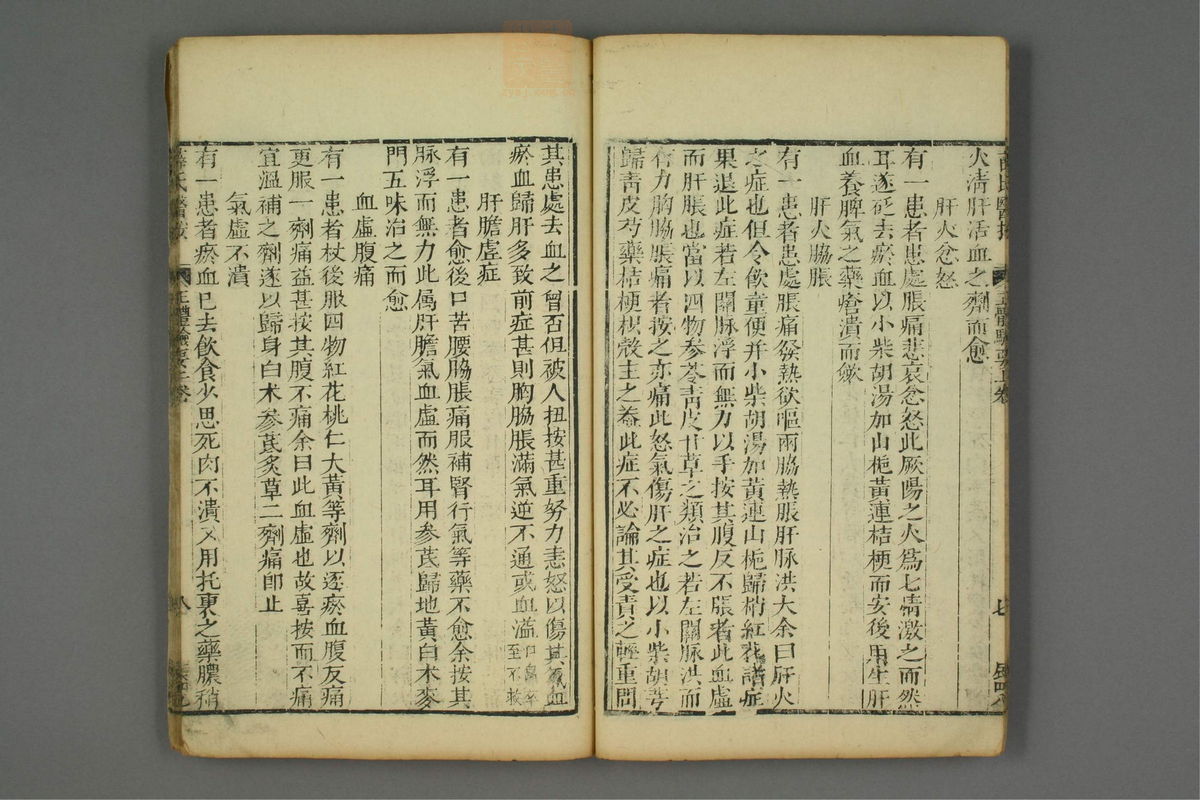 火淸肝活血之劑而愈
肝火忿怒
有一患者患處脹痛悲哀忿怒此厥陽之火爲七情激之而然
耳遂砭去瘀血以小柴胡湯加山梔黃連桔梗而安後用生肝
血養脾氣之藥瘡潰而斂
肝火脇脹
有一患者患處脹痛發熱欲嘔兩脇熱脹肝脉洪大余曰肝火
之症也但令飮童便并小柴胡湯加黃連山梔歸梢紅花諸症
果退此症若左關脉浮而無力以手按其腹反不脹者此血虛
而肝脹也當以四物參苓靑皮甘草之類治之若左關脉洪而
有力胸脇脹痛者按之亦痛此怒氣傷肝之症也以小柴胡芎
歸靑皮芍藥桔梗枳殼主之蓋此症不必論其受責之輕重問
其患處去血之曾否但被人扭按甚重努力恚怒以傷其氣血
瘀血歸肝多致前症甚則胸脇脹滿氣逆不通或血溢口鼻卒至不救
肝膽虛症
有一患者愈後口苦腰脇脹痛服補腎行氣等藥不愈余按其
脉浮而無力此属肝膽氣血虛而然耳用參芪歸地黃白术麥
門五味治之而愈
血虛腹痛
有一患者杖後服四物紅花桃仁大黃等劑以逐瘀血腹反痛
更服一劑痛益甚按其腹不痛余曰此血虛也故喜按而不痛
宜溫補之劑遂以歸身白术參芪炙草二劑痛卽止
氣虛不潰
有一患者瘀血已去飮食少思死肉不潰又用托裏之藥膿稍